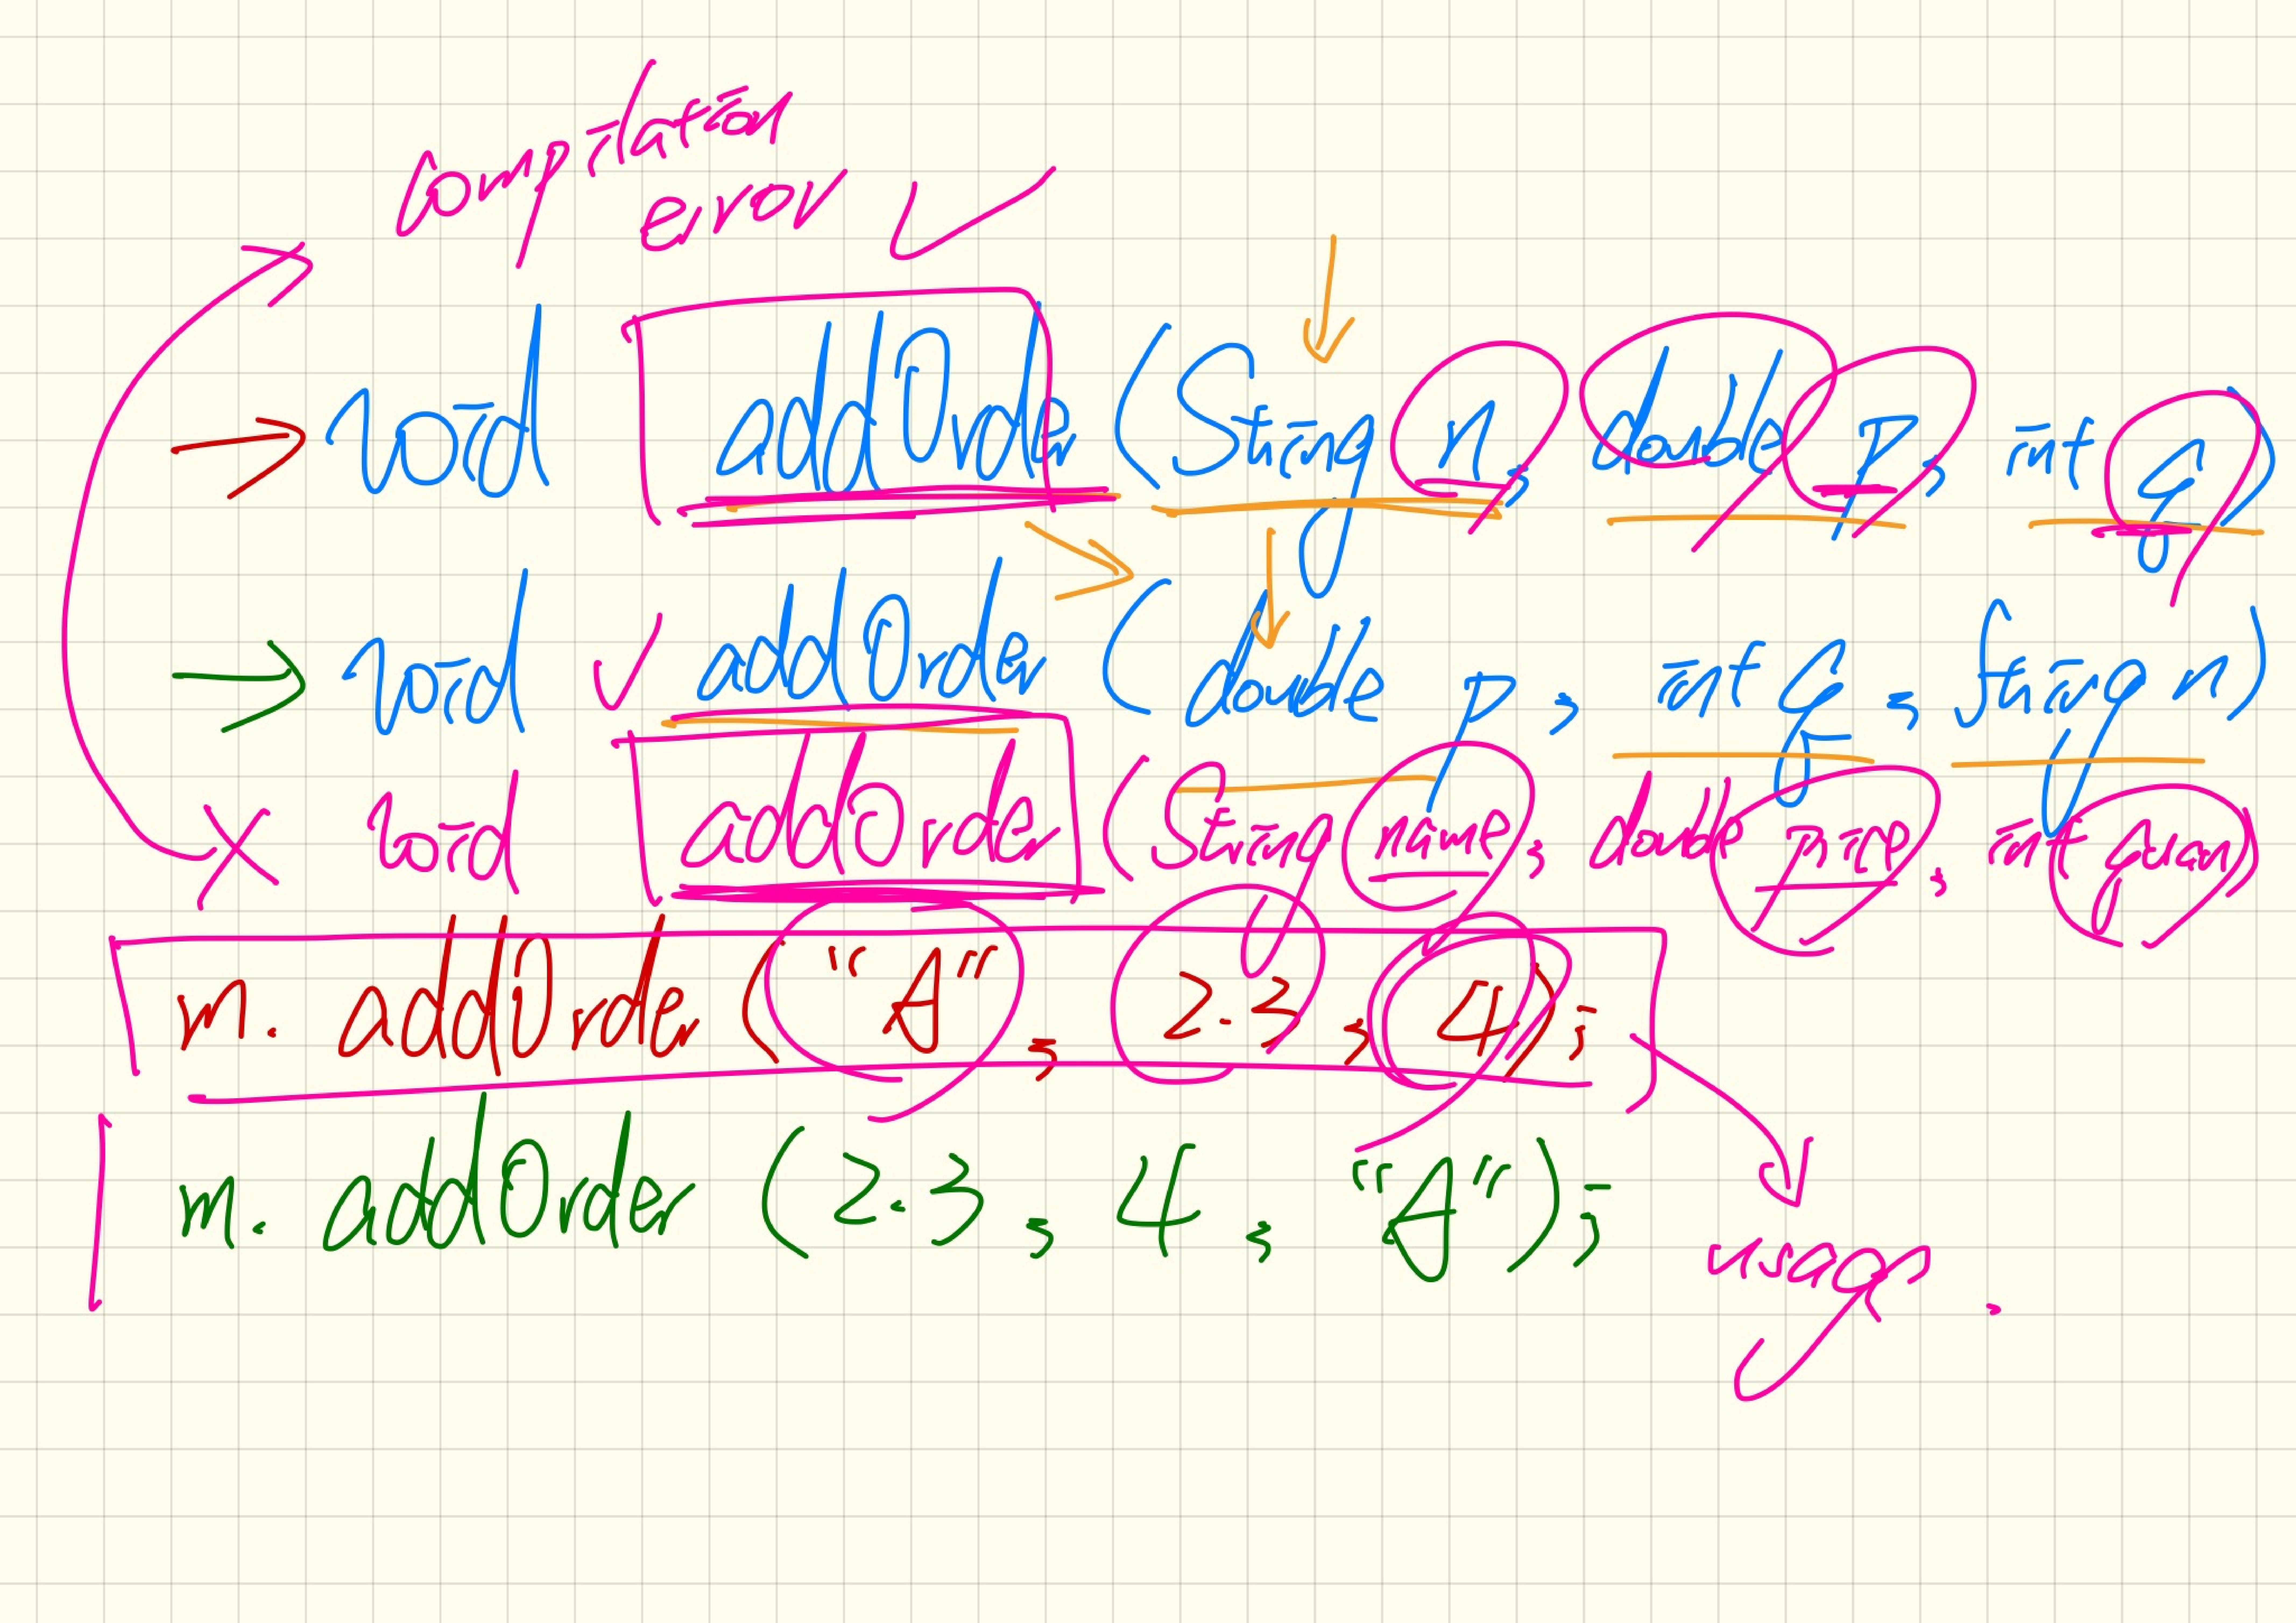 compilation
error
void addOrder (String n, double p, int q)
void addOrder (double p, int q, String n)
void addOrder (String name, double price, int quan)
m. addOrder ("A", 2.3, 4);
m. addOrder (2.3, 4, "A");
usage